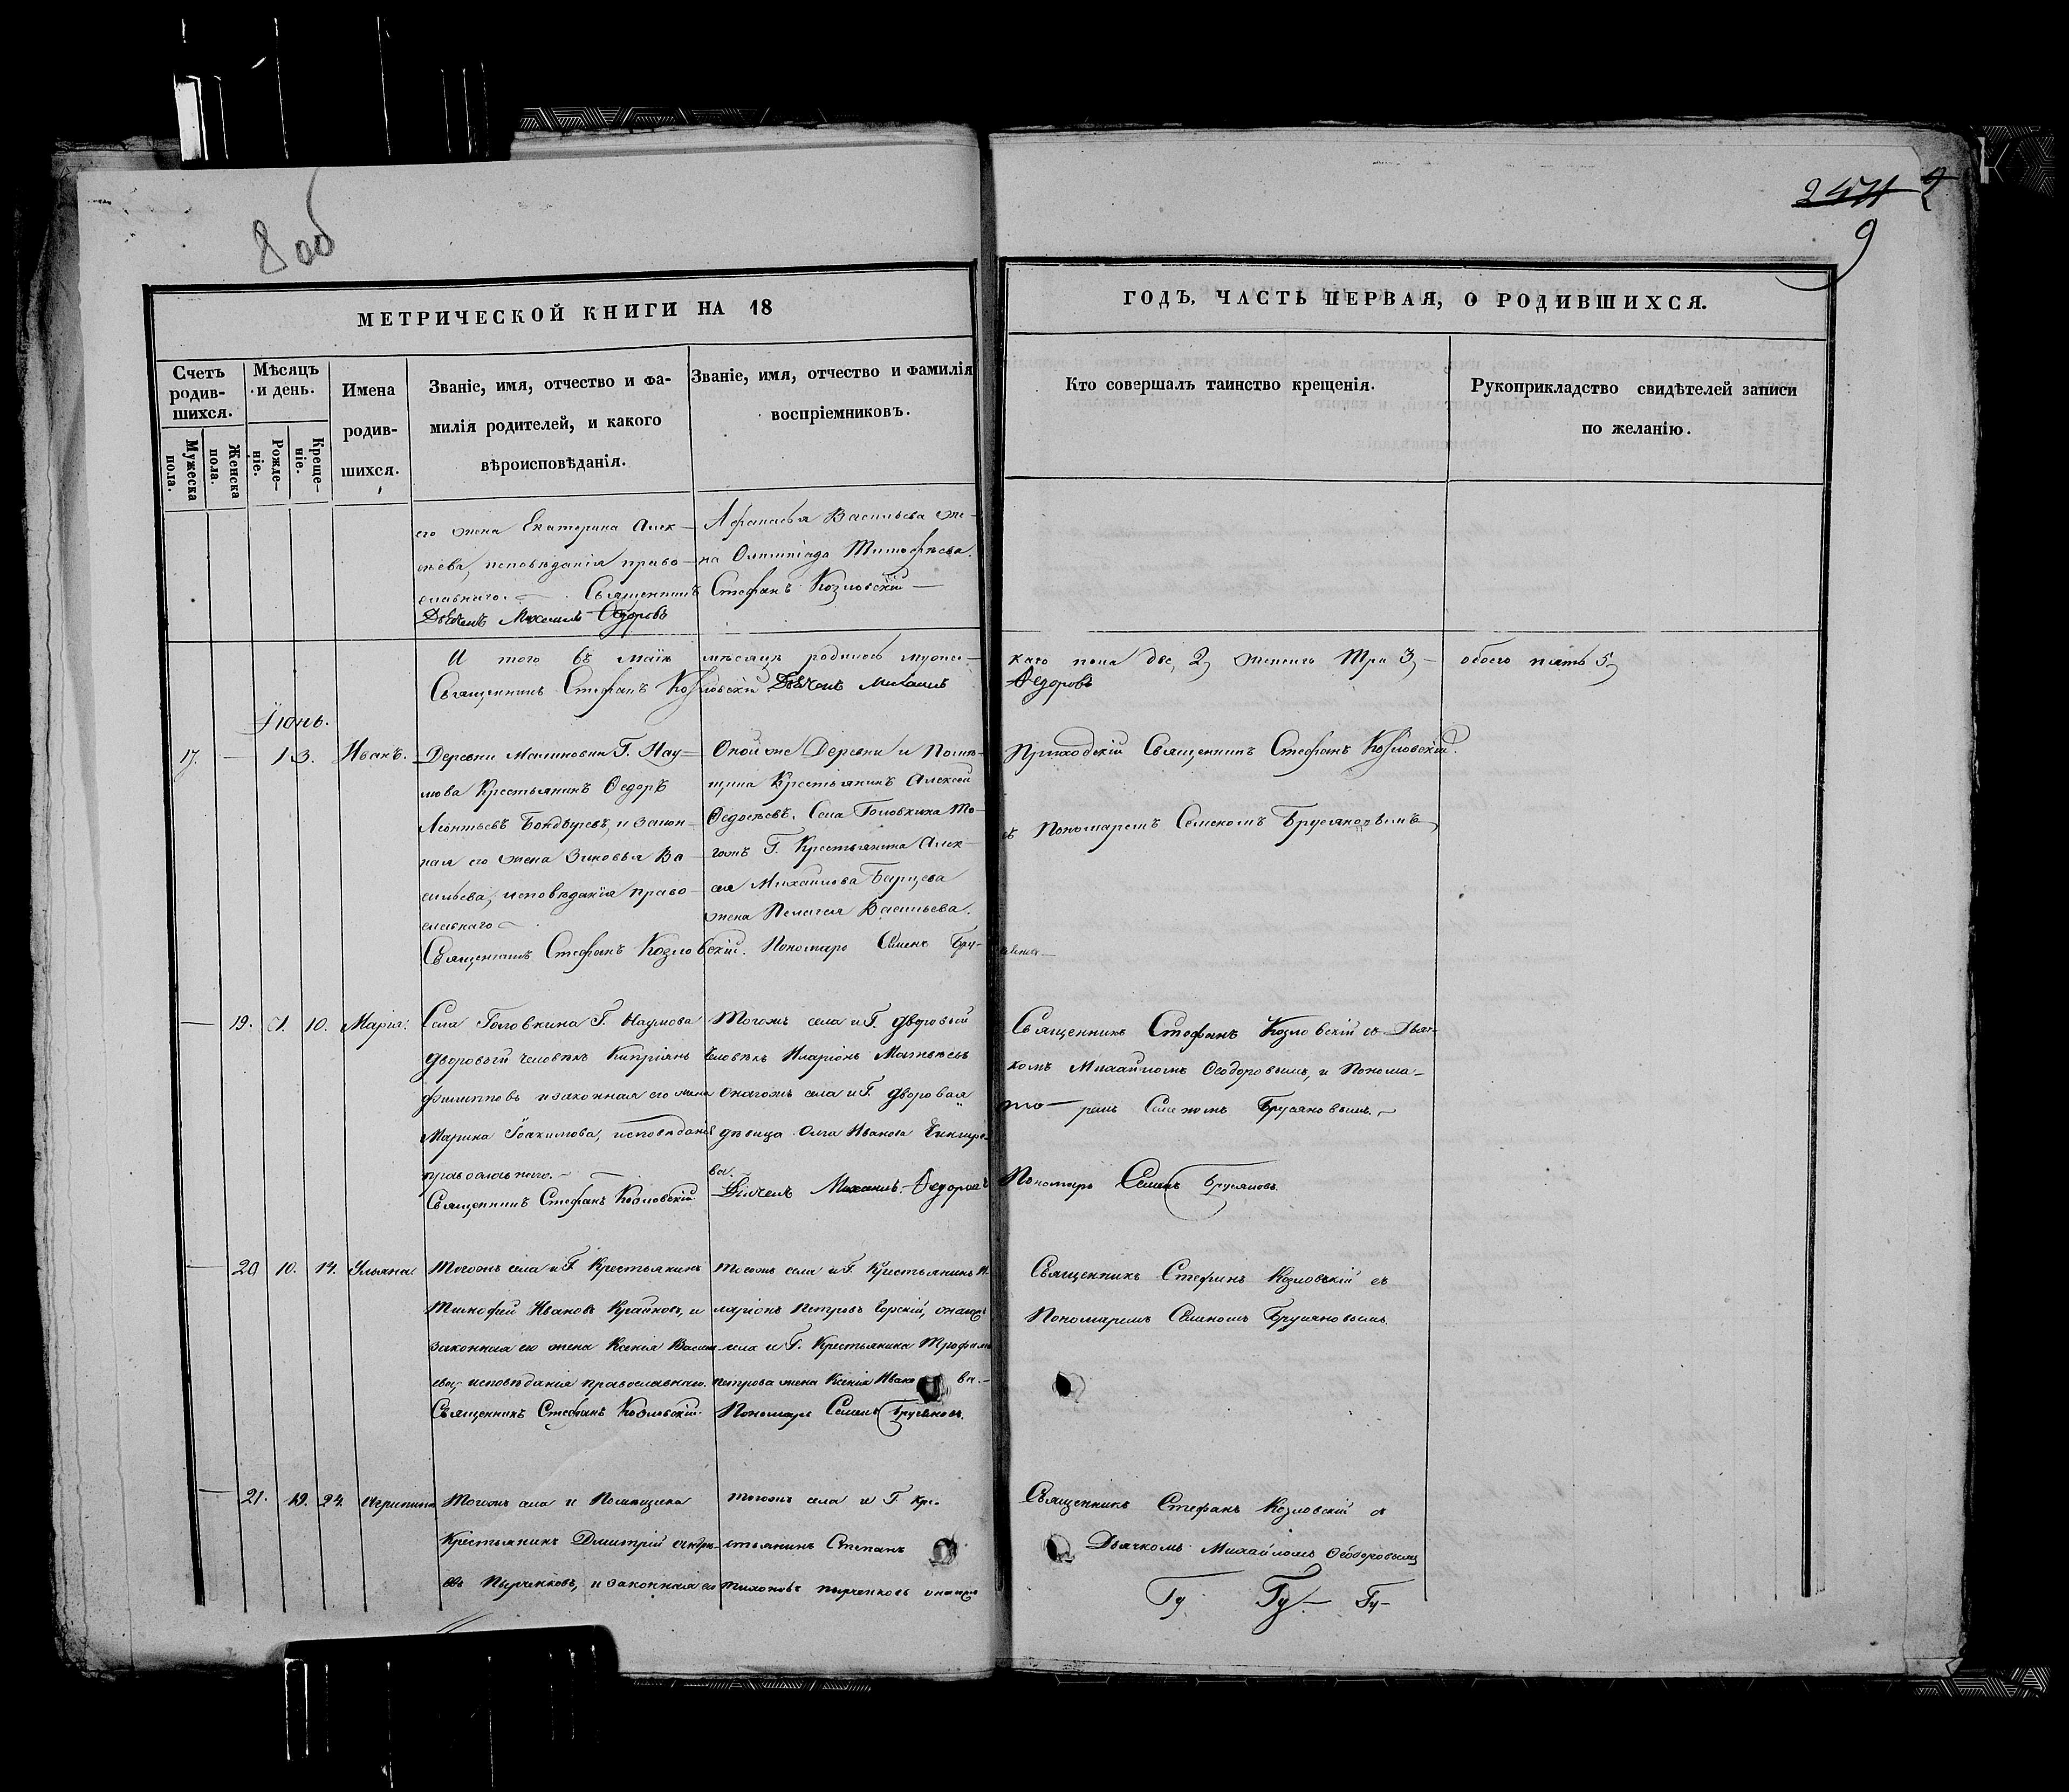 8 об
9
МЕТРИЧЕСКОЙ КНИГИ НА 18
ГОДЪ. ЧАСТЬ ПЕРВАЯ, О РОДИВШИХСЯ.
Счетъ родившихся.
Мужеска пола.
Женска пола.
Мѣсяцъ и день.
Рожде-
ніе.
Креще-
ніе.
Имена
родив-
шихся.
Званіе, имя, отчество и фа-
милія родителей, и какого
вѣроисповѣданія.
Званіе, имя, отчество и фамилія
воспріемниковъ.
Кто совершалъ таинство крещенія.
Рукоприкладство свидѣтелей записи
по желанію.
его жена Екатерина Алек-
сѣева, исповѣданія право-
славнаго. Священникъ Стефанъ Козловскій
Дьячекъ Михаилъ Федоровъ
Афанасья Васильева же-
на Олимпіада Тимофѣева.
И того въ маiѣ мѣсяцѣ родилось мужес-
каго пола две, 2, женска три 3, обоего пять 5,
Священникъ Стефанъ Козловскій Дьячекъ Михаилъ Федоровъ
Іюнь.
17. — 1 3. Иванъ.
Деревни Малиновки Г. Нау-
мова Крестьянинъ Федоръ
Леонтьевъ и закон-
ная его жена Зиновья Ва-
сильева, исповѣданія право-
славнаго
Оной же Деревни и Помѣ-
щика Крестьянинъ Алексей
Федосѣевъ. Села Головкина то-
гожъ Г. Крестьянина Алек-
сея Михаилова
жена Пелагея Васильева.
Приходскій Священникъ Стефанъ Козловскій.
съ Пономаремъ Семеномъ Брусяновымъ
Священникъ Стефанъ Козловскій. Пономарь Семенъ Бру-
— 19. 10. Марія.
Села Головкина Г. Наумова
Дворовый человѣкъ Кипріянъ
Филипповъ и законная его жена
Марина Іоакимова, исповѣданія
православнаго.
Священникъ Стефанъ Козловскій.
Тогожъ села и Г. Дворовый
Человѣкъ Иларіонъ Матвѣевъ
онагожъ села и Г. Дворовая
дѣвица Олга Иванова
ва.
Дьячекъ Михаилъ Федоровъ
Священникъ Стефанъ Козловскій съ Дьяч-
комъ Михайломъ Феодоровымъ, и Понома-
ремъ Семеномъ Брусяновымъ.
Пономарь Семенъ Брусяновъ
— 20 10. 14. Ульяна
Тогожъ села и Г. Крестьянинъ
Тимофей Ивановъ и
законная его жена Ксенія Василь-
ева, исповѣданія православнаго.
Священникъ Стефанъ Козловскій.
Тогожъ села и Г. Крестьянинъ И-
ларіонъ Петровъ онагожъ
села и Г. Крестьянина Трофима
Петрова жена Ксенія Ивано ва.
Пономарь Семенъ Брусяновъ.
Священникъ Стефанъ Козловскій съ
Пономаремъ Семеномъ Брусяновымъ.
— 21. 19. 24. Агрипина
Тогожъ села и Помѣщика
Крестьянинъ Дмитрій Андре-
евъ Пырченковъ, и законная его
тогожъ села и Г. кре-
стьянинъ Степанъ
Тихоновъ Пырченковъ онагожъ
Священникъ Стефанъ Козловскій съ
Дьячкомъ Михайломъ Феодоровымъ